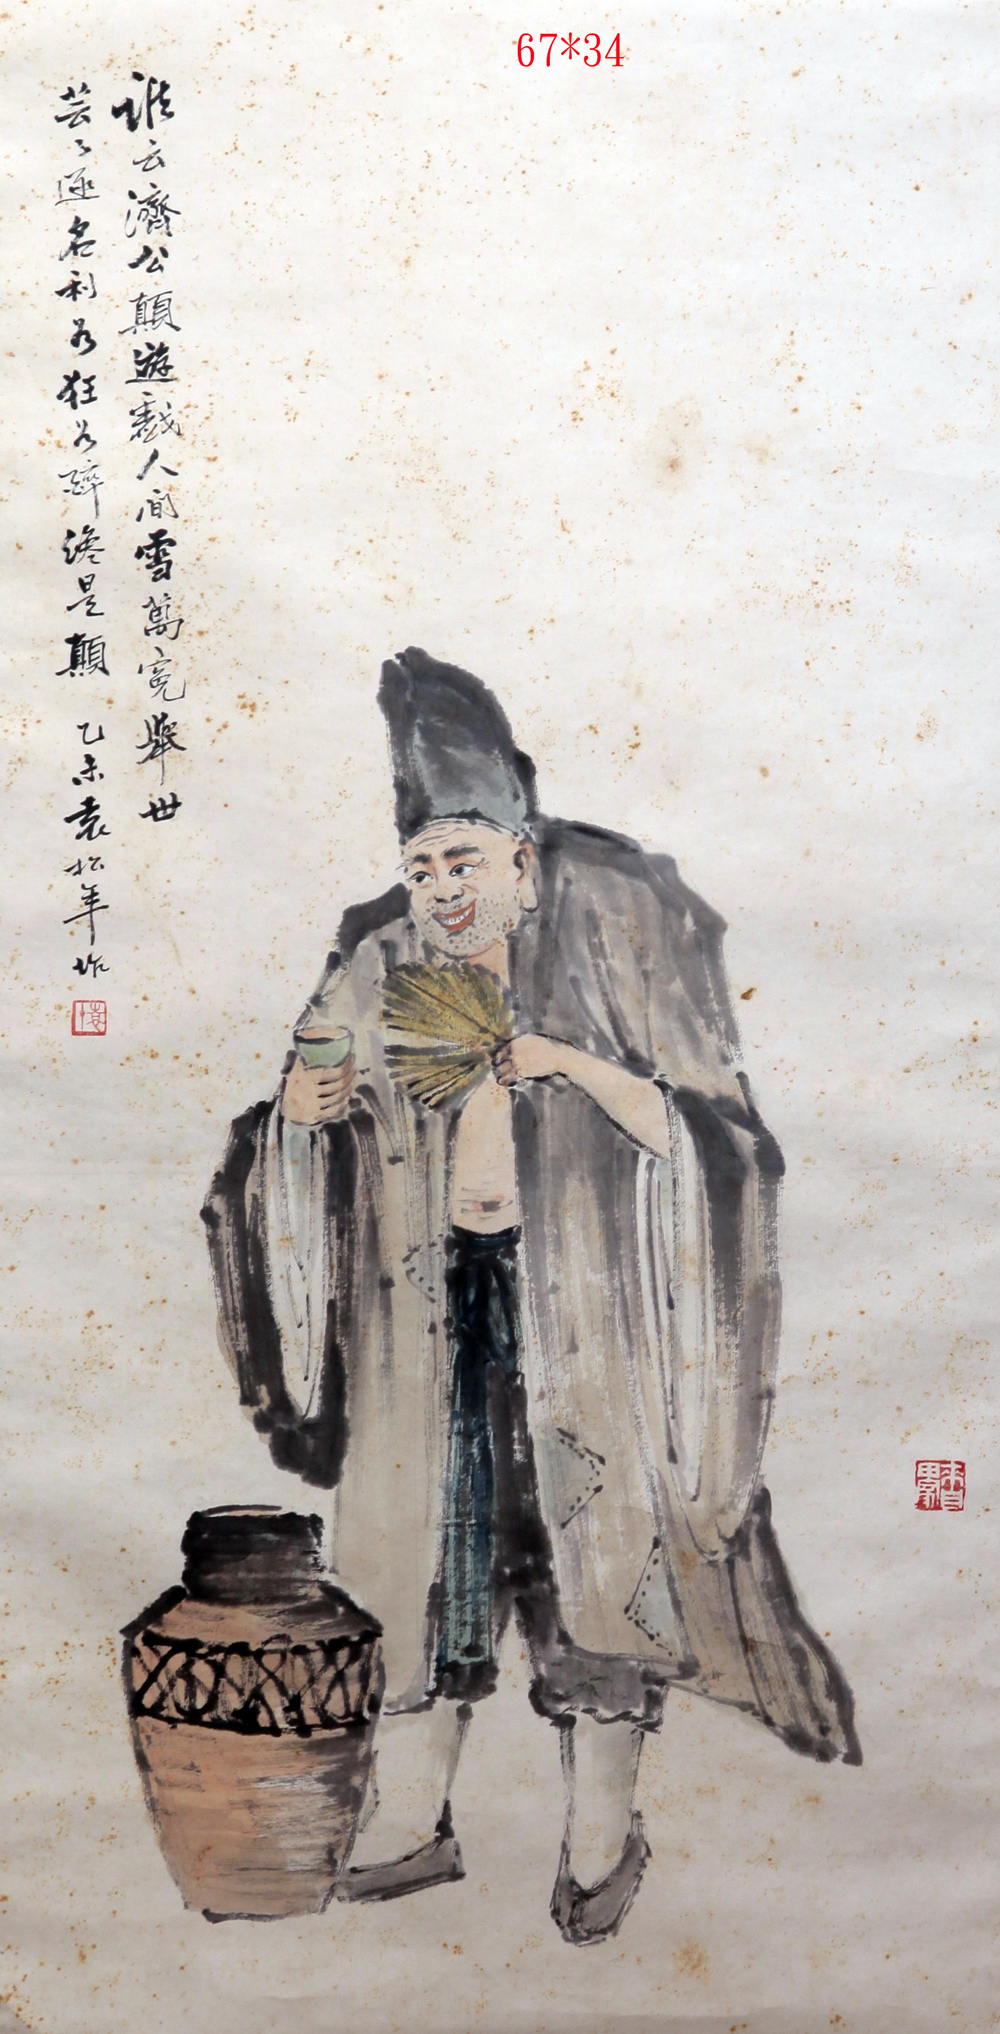 67*34
誰云濟公顛遊戲人間雪萬冤舉世
芸々逐名利狂醉是顛 乙未袁松年作